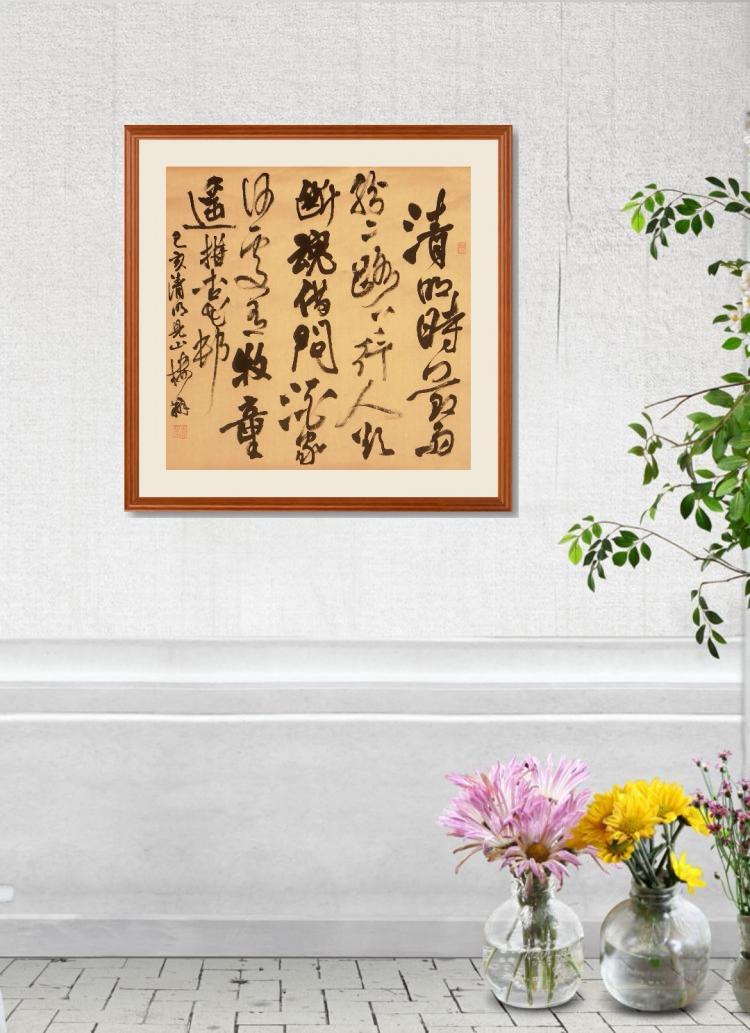 清明時節雨
紛〻路上行人欲
斷魂借問酒家
何處有牧童
遙指杏花邨
己亥清明見山樓